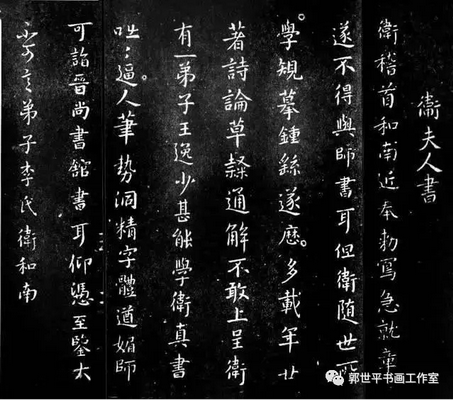 衛夫人書
衛稽首和南近奉勅寫急就章
遂不得與師書耳但衛隨世所
學規摹鍾繇遂歷多載年廿
著詩論草隸通解不敢上呈衛
有一弟子王逸少甚能學衛真書
咄〻逼人筆勢洞精字體遒媚師
可詣晉尚書館書耳仰憑至鑒大
不可言弟子李氏衛和南
郭世平书画工作室